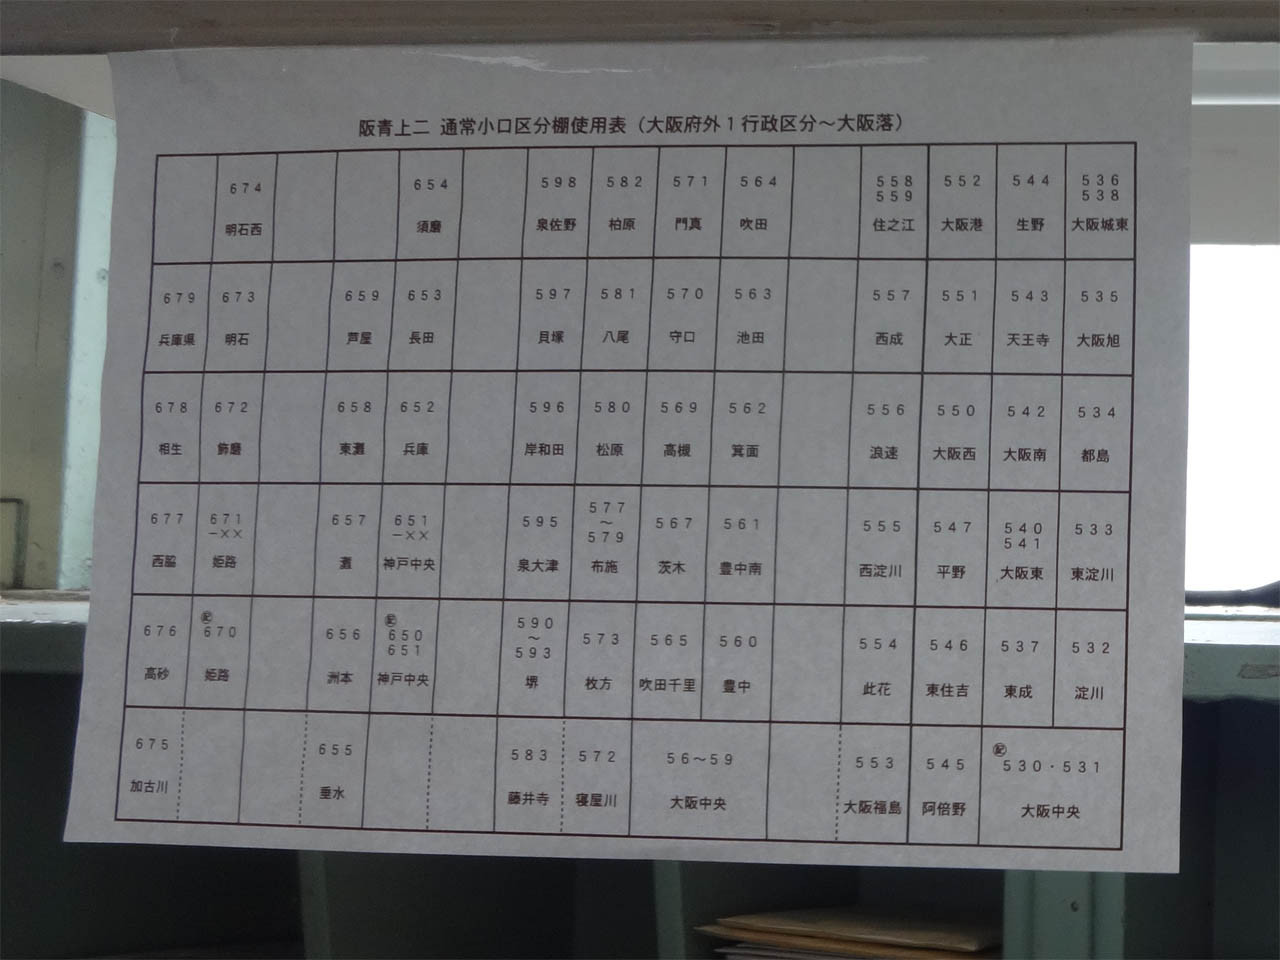 阪青上二 通常小口区分棚使用表（大阪府外１行政区分～大阪落）
674 654 598 582 571 564 558 552 544 536
559 538
明石西 須磨 泉佐野 柏原 門真 吹田 住之江 大阪港 生野 大阪城東
679 673 659 653 597 581 570 563 557 551 543 535
兵庫県 明石 芦屋 長田 貝塚 八尾 守口 池田 西成 大正 天王寺 大阪旭
678 672 658 652 596 580 569 562 556 550 542 534
相生 飾磨 東灘 兵庫 岸和田 松原 高槻 箕面 浪速 大阪西 大阪南 都島
677 671 657 651 595 577 567 561 555 547 540 533
－×× －×× ～ 541
579
西脇 姫路 灘 神戸中央 泉大津 布施 茨木 豊中南 西淀川 平野 大阪東 東淀川
㊑ ㊑
676 670 656 650 590 573 565 560 554 546 537 532
651 ～
593
高砂 姫路 洲本 神戸中央 堺 枚方 吹田千里 豊中 此花 東住吉 東成 淀川
㊑
675 655 583 572 56～59 553 545 530・531
加古川 垂水 藤井寺 寝屋川 大阪中央 大阪福島 阿倍野 大阪中央